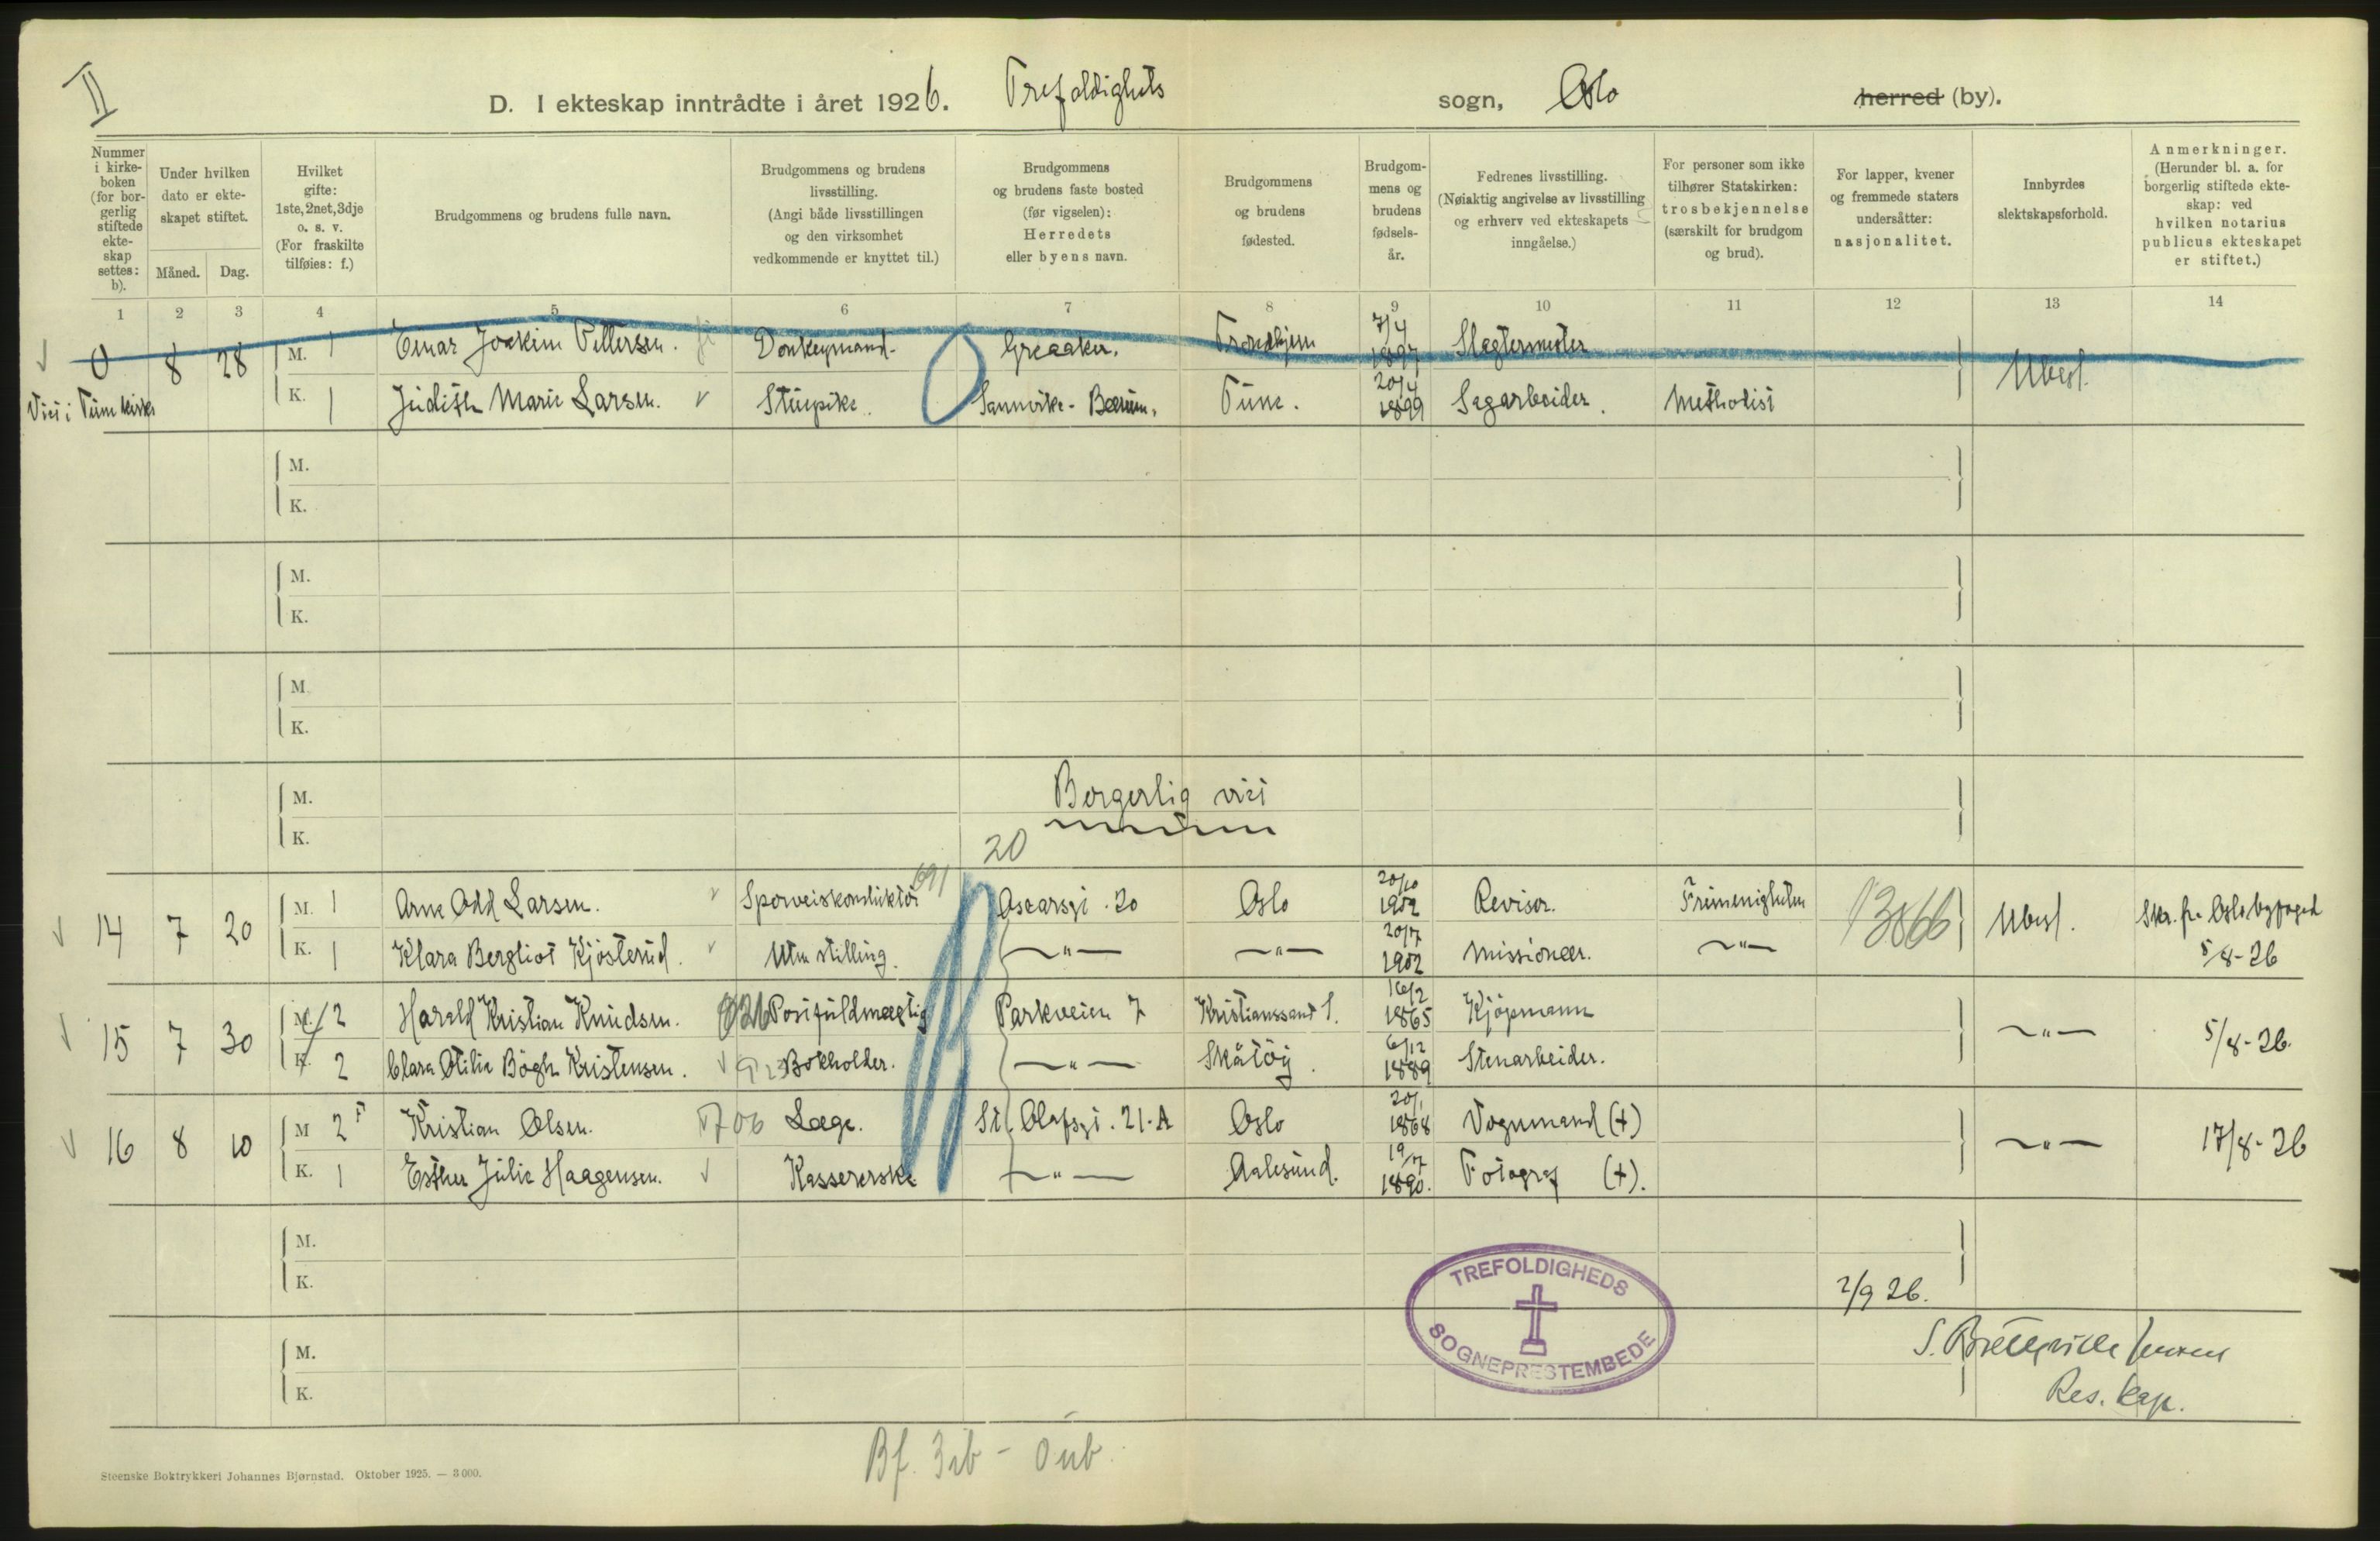 II
D. I ekteskap inntrådte i året 1926. Trefoldighets sogn, Oslo herred (by).
Nummer i kirkeboken (for borgerlig stiftede ekteskap settes: b).
Under hvilken dato er ekteskapet stiftet.
Måned. Dag.
Hvilket gifte: 1ste, 2net, 3dje o. s. v. (For fraskilte tilføies: f.)
Brudgommens og brudens fulle navn.
Brudgommens og brudens livsstilling. (Angi både livsstillingen og den virksomhet vedkommende er knyttet til.)
Brudgommens og brudens faste bosted (før vigselen): Herredets eller byens navn.
Brudgommens og brudens fødested.
Brudgommens og brudens fødselsår.
Fedrenes livsstilling. (Nøiaktig angivelse av livsstilling og erhverv ved ekteskapets inngåelse.)
For personer som ikke tilhører Statskirken: trosbekjennelse (særskilt for brudgom og brud).
For lapper, kvener og fremmede staters undersåtter: nasjonalitet.
Innbyrdes slektskapsforhold.
Anmerkninger. (Herunder bl. a. for borgerlig stiftede ekteskap: ved hvilken notarius publicus ekteskapet er stiftet.)
1 2 3 4 5 6 7 8 9 10 11 12 13 14
0 8 28 M. 1 Einar Joakim Pettersen. Donkeymand. Greaaker. Trondhjem 7/4 1897 Slagtermester Ubesl.
Viet i Tune kirke K. 1 Judith Marie Larsen. Stuepike. Sannvika - Bærum. Tune. 20/4 1899 Sagarbeider. Methodist
M.
K.
M.
K.
M.
K.
M. Borgerlig viet
K.
20
14 7 20 M. 1 Arne Odd Larsen. Sporveiskonduktör 691 Oscarsgt. 20 Oslo 20/10 1902 Revisor. Frimenigheten 13866 Ubesl. Skr. fra Oslo byfoged
K. 1 Klara Bergliot Kjösterud. Uten stilling. —"— —"— 20/7 1902 Missionær. —"— 5/8-26
15 7 30 M. 2 Harald Kristian Knudsen. 826 Postfuldmægtig Parkveien 7 Kristianssand S. 16/2 1865 Kjöpmann —"— 5/8-26.
K. 2 Clara Otilie Bögh Kristensen. 923 Bokholder. —"— Skåtöy. 6/12 1889 Stenarbeider.
16 8 10 M 2 F Kristian Olsen. 706 Læge. St. Olafsgt. 21.A Oslo 20/1 1868 Vognmand (+) —"— 17/8-26
K. 1 Esther Julie Haagensen. Kassererske —"— Aalesund. 19/7 1890. Fotograf (+).
M.
K.
2/9 26.
TREFOLDIGHEDS SOGNEPRESTEMBEDE
M.
K.
S. Bretteville Jensen
Res. kap.
Bf. 3ib - 0ub.
Steenske Boktrykkeri Johannes Bjørnstad. Oktober 1925. — 3 000.